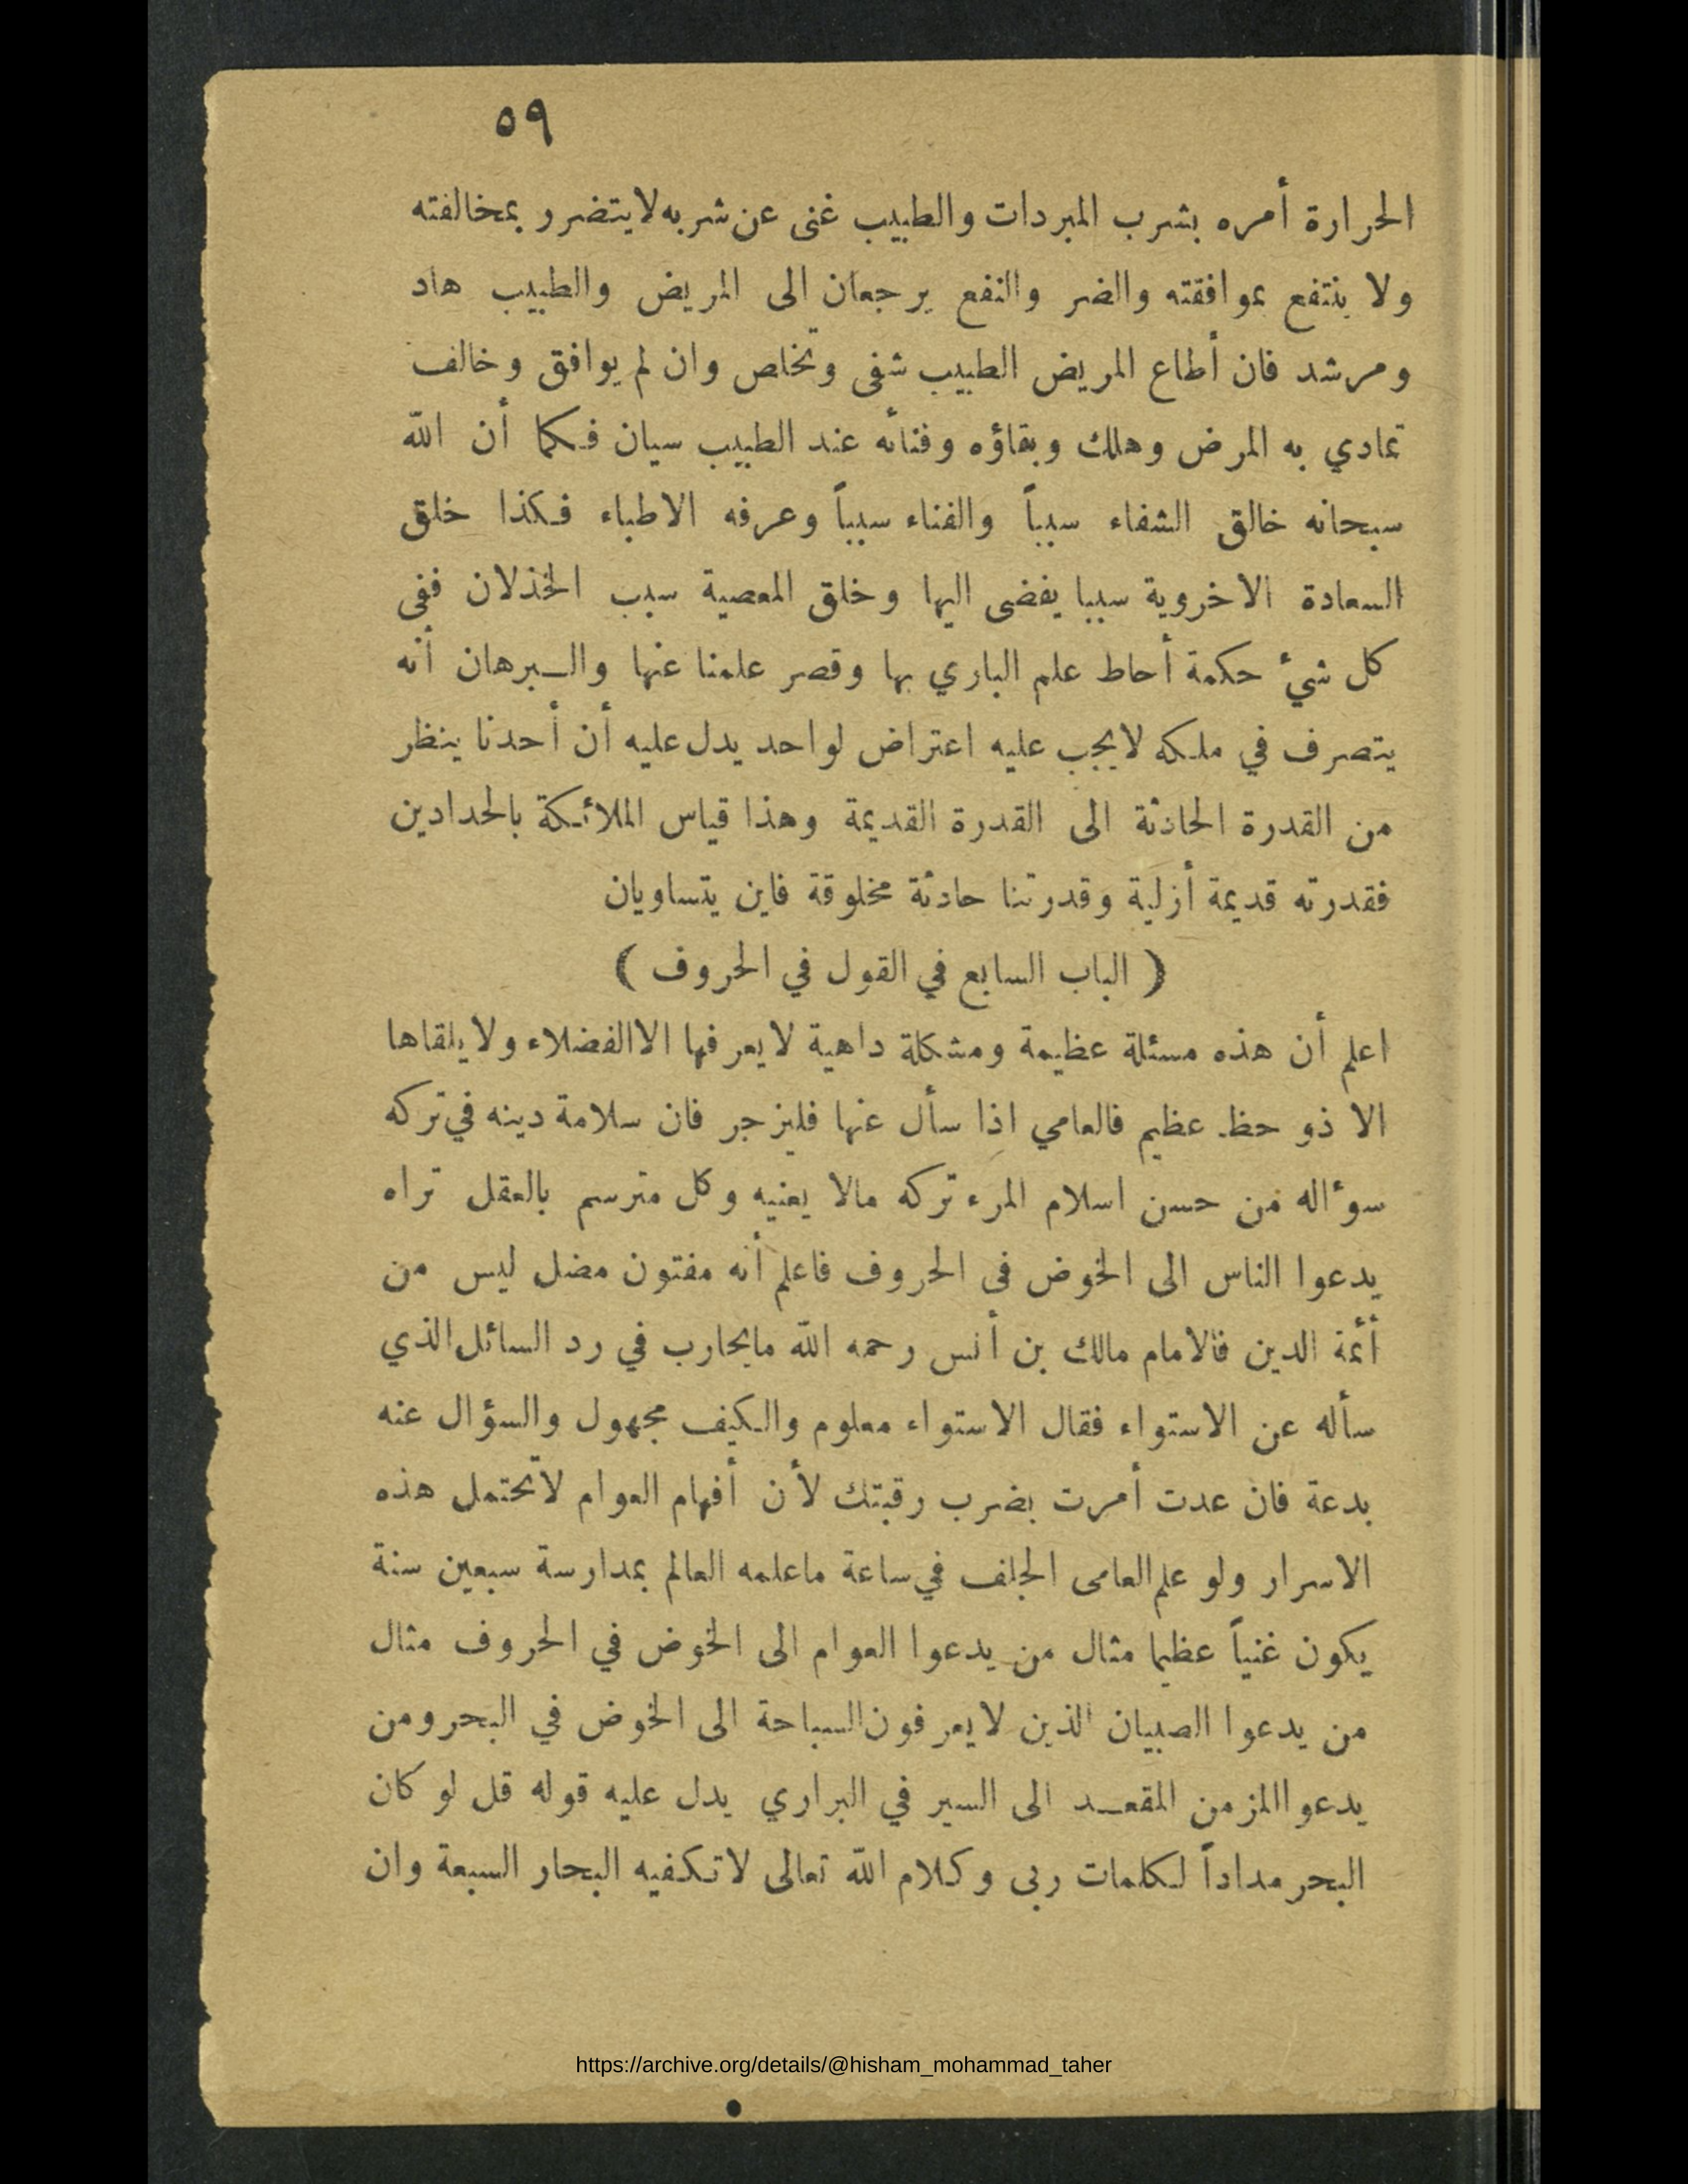 ٥٩
الحرارة أمره بشرب المبردات والطبيب غنى عن شربه لا يتضرر بمخالفته
ولا ينتفع بموافقته والضر والنفع يرجعان الى المريض والطبيب هاد
ومرشد فان أطاع المريض الطبيب شفى وتخلص وان لم يوافق وخالف
تمادي به المرض وهلك وبقاؤه وفنائه عند الطبيب سيان فكما أن الله
سبحانه خالق الشفاء سبباً والفناء سبباً وعرفه الاطباء فكذا خلق
السعادة الاخروية سببا يفضى اليها وخلق المعصية سبب الخذلان ففى
كل شيء حكمة أحاط علم الباري بها وقصر علمنا عنها والبرهان أنه
يتصرف في ملكه لا يجب عليه اعتراض لواحد يدل عليه أن أحدنا ينظر
من القدرة الحادثة الى القدرة القديمة وهذا قياس الملائكة بالحدادين
فقدرته قديمة أزلية وقدرتنا حادثة مخلوقة فاين يتساويان
( الباب السابع في القول في الحروف )
اعلم أن هذه مسئلة عظيمة ومشكلة داهية لا يعرفها الا الفضلاء ولا يلقاها
الا ذو حظ عظيم فالعامي اذا سأل عنها فليزجر فان سلامة دينه في تركه
سوءاله من حسن اسلام المرء تركه مالا يعنيه وكل مترسم بالعقل تراه
يدعوا الناس الى الخوض فى الحروف فاعلم أنه مفتون مضل ليس من
أئمة الدين فالامام مالك بن أنس رحمه الله مايحارب في رد السائل الذي
سأله عن الاستواء فقال الاستواء معلوم والكيف مجهول والسؤال عنه
بدعة فان عدت أمرت بضرب رقبتك لأن أفهام العوام لاتحتمل هذه
الاسرار ولو علم العامى الجلف في ساعة ماعلمه العالم بمدارسة سبعين سنة
يكون غنياً عظيما مثال من يدعوا العوام الى الخوض في الحروف مثال
من يدعوا الصبيان الذين لا يعرفون السباحة الى الخوض في البحر ومن
يدعوا المزمن المقعد الى السير في البراري يدل عليه قوله قل لو كان
البحر مداداً لكلمات ربى وكلام الله تعالى لا تكفيه البحار السبعة وان
https://archive.org/details/@hisham_mohammad_taher